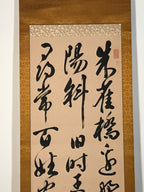 朱雀橋邊
陽斜旧时王
尋常百姓